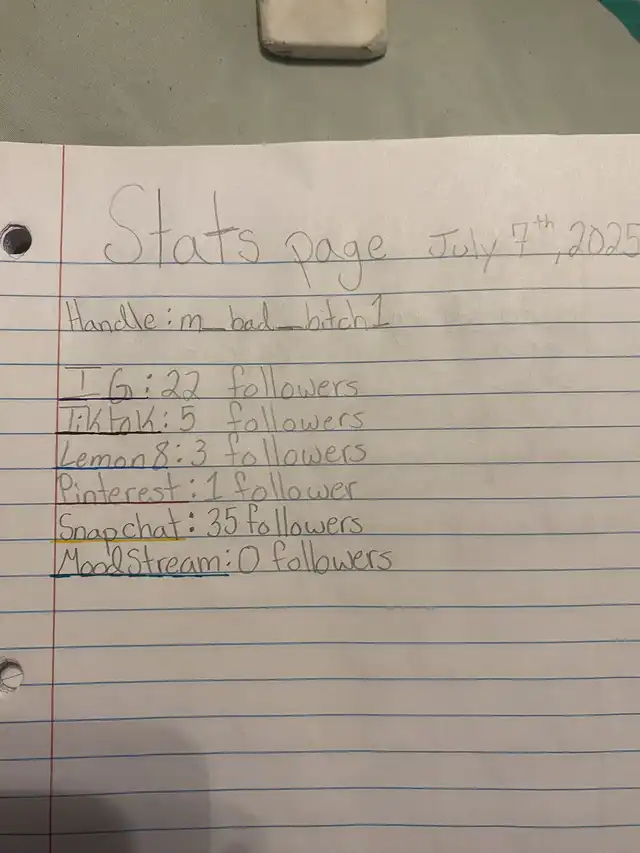 Stats page July 7th, 2025
Handle: m_bad_bitch1
IG: 22 followers
Tiktok: 5 followers
Lemon8: 3 followers
Pinterest: 1 follower
Snapchat: 35 followers
MoodStream: 0 followers